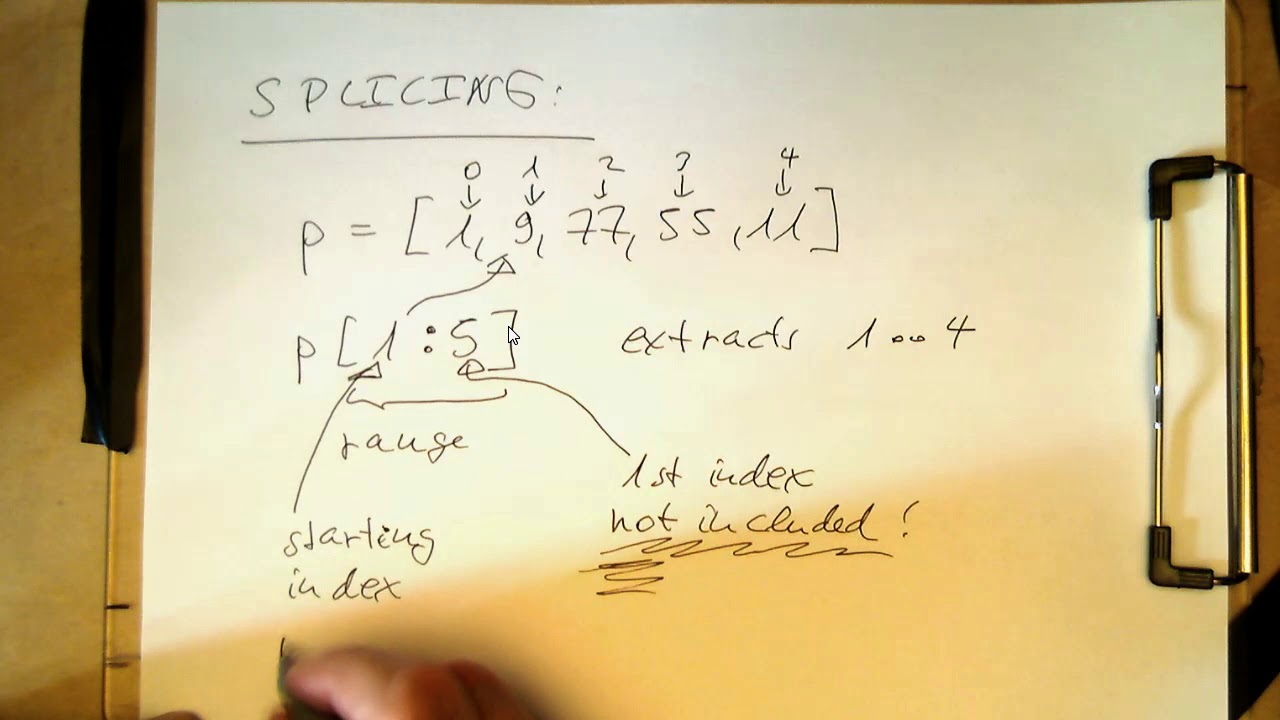 SPLICING:
0 1 2 3 4
p = [1, 9, 77, 55, 11]
p[1:5] extracts 1..4
range
1st index
not included!
starting
index